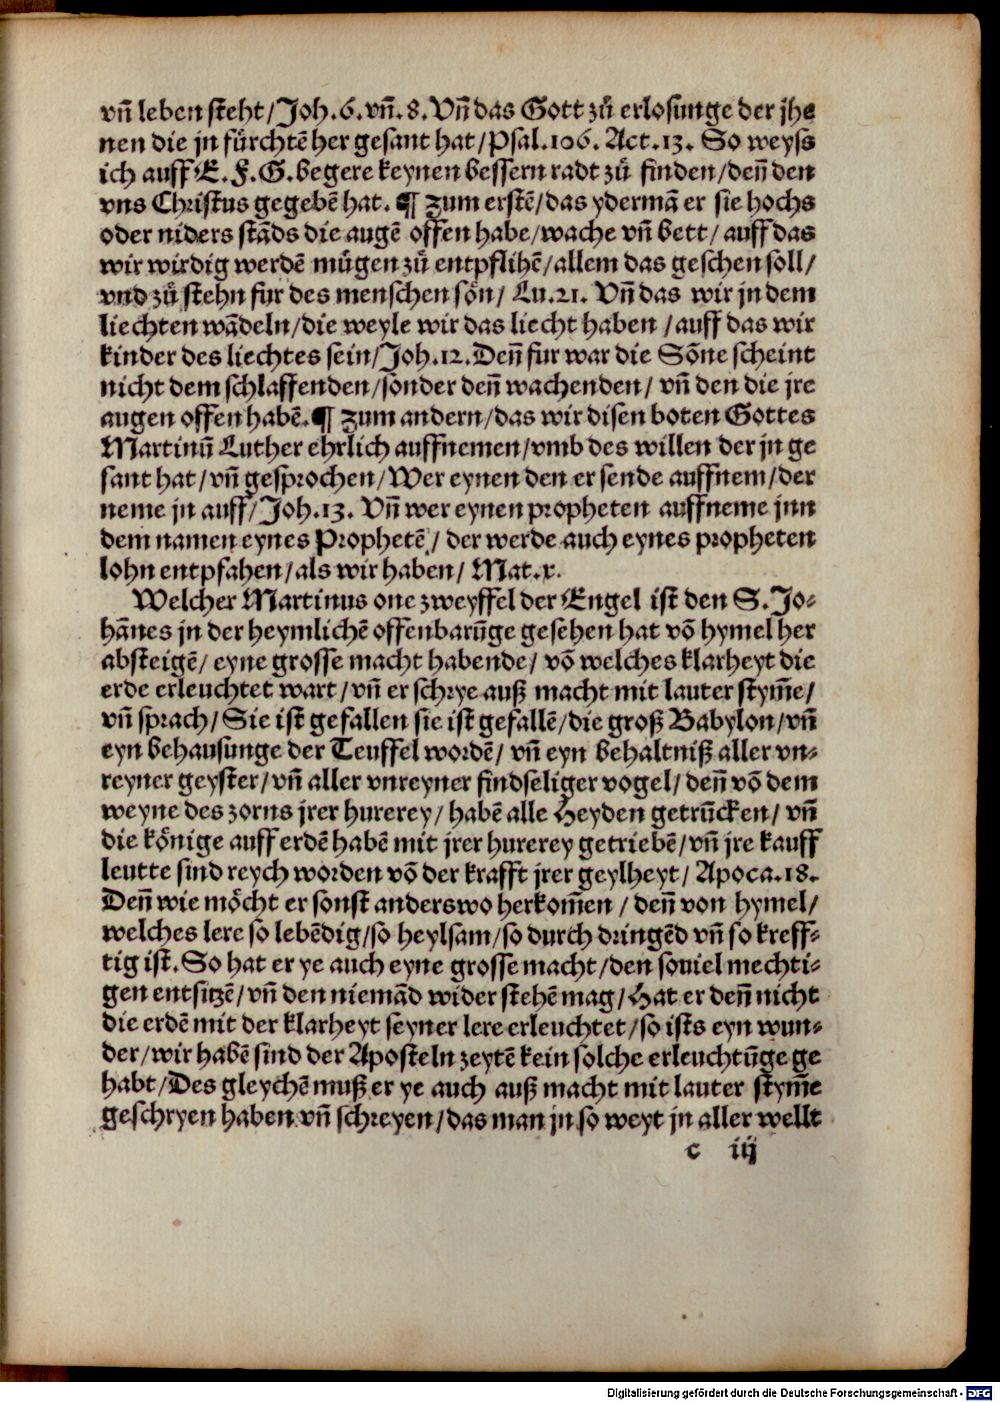 vñ leben steht/Joh.6.vñ.8.Vñ das Gott zů erlosunge der jhe
nen die jn fürchtē her gesant hat/Psal.106. Act.13. So weyss
ich auff E.F.G.begere keynen bessern radt zů finden/deñ den
vns Christus gegebē hat.¶ Zum erstē/das ydermā er sie hochs
oder niders stāds die augē offen habe/wache vñ bett/auff das
wir wirdig werdē mügen zů entpflihē/allem das geschen soll/
vnd zů stehn fur des menschen sön/ Lu.21. Vñ das wir jn dem
liechten wādeln/die weyle wir das liecht haben /auff das wir
kinder des liechtes sein/Joh.12.Deñ fur war die Sōne scheint
nicht dem schlaffenden/sonder deñ wachenden/ vñ den die jre
augen offen habē.¶ Zum andern/das wir disen boten Gottes
Martinũ Luther ehrlich auffnemen/vmb des willen der jn ge
sant hat/vñ gesprochen/Wer eynen den er sende auffnem/der
neme jn auff/Joh.13. Vñ wer eynen propheten auffneme jnn
dem namen eynes Prophetē/ der werde auch eynes propheten
lohn entpfahen/als wir haben/ Mat.x.
Welcher Martinus one zweyffel der Engel ist den S.Jo-
hānes jn der heymlichē offenbarũge gesehen hat vō hymel her
absteigē/ eyne grosse macht habende/ vō welches klarheyt die
erde erleuchtet wart/vñ er schrye auß macht mit lauter stym̄e/
vñ sprach/Sie ist gefallen sie ist gefallē/die groß Babylon/vñ
eyn behausunge der Teuffel wordē/ vñ eyn behaltniß aller vn-
reyner geyster/vñ aller vnreyner findseliger vogel/deñ vō dem
weyne des zorns jrer hurerey/habē alle Heyden getrũcken/vñ
die könige auff erdē habē mit jrer hurerey getriebē/vñ jre kauff
leutte sind reych worden vō der krafft jrer geylheyt/ Apoca.18.
Deñ wie möcht er sonst anderswo herkom̄en / deñ von hymel/
welches lere so lebēdig/so heylsam/so durch dringēd vñ so kreff-
tig ist.So hat er ye auch eyne grosse macht/den souiel mechti-
gen entsitzē/vñ den niemād wider stehē mag/Hat er deñ nicht
die erdē mit der klarheyt seyner lere erleuchtet/so ists eyn wun-
der/wir habē sind der Aposteln zeytē kein solche erleuchtũge ge
habt/Des gleychē muß er ye auch auß macht mit lauter stym̄e
geschryen haben vñ schreyen/das man jn so weyt jn aller wellt
c iij
Digitalisierung gefördert durch die Deutsche Forschungsgemeinschaft - DFG